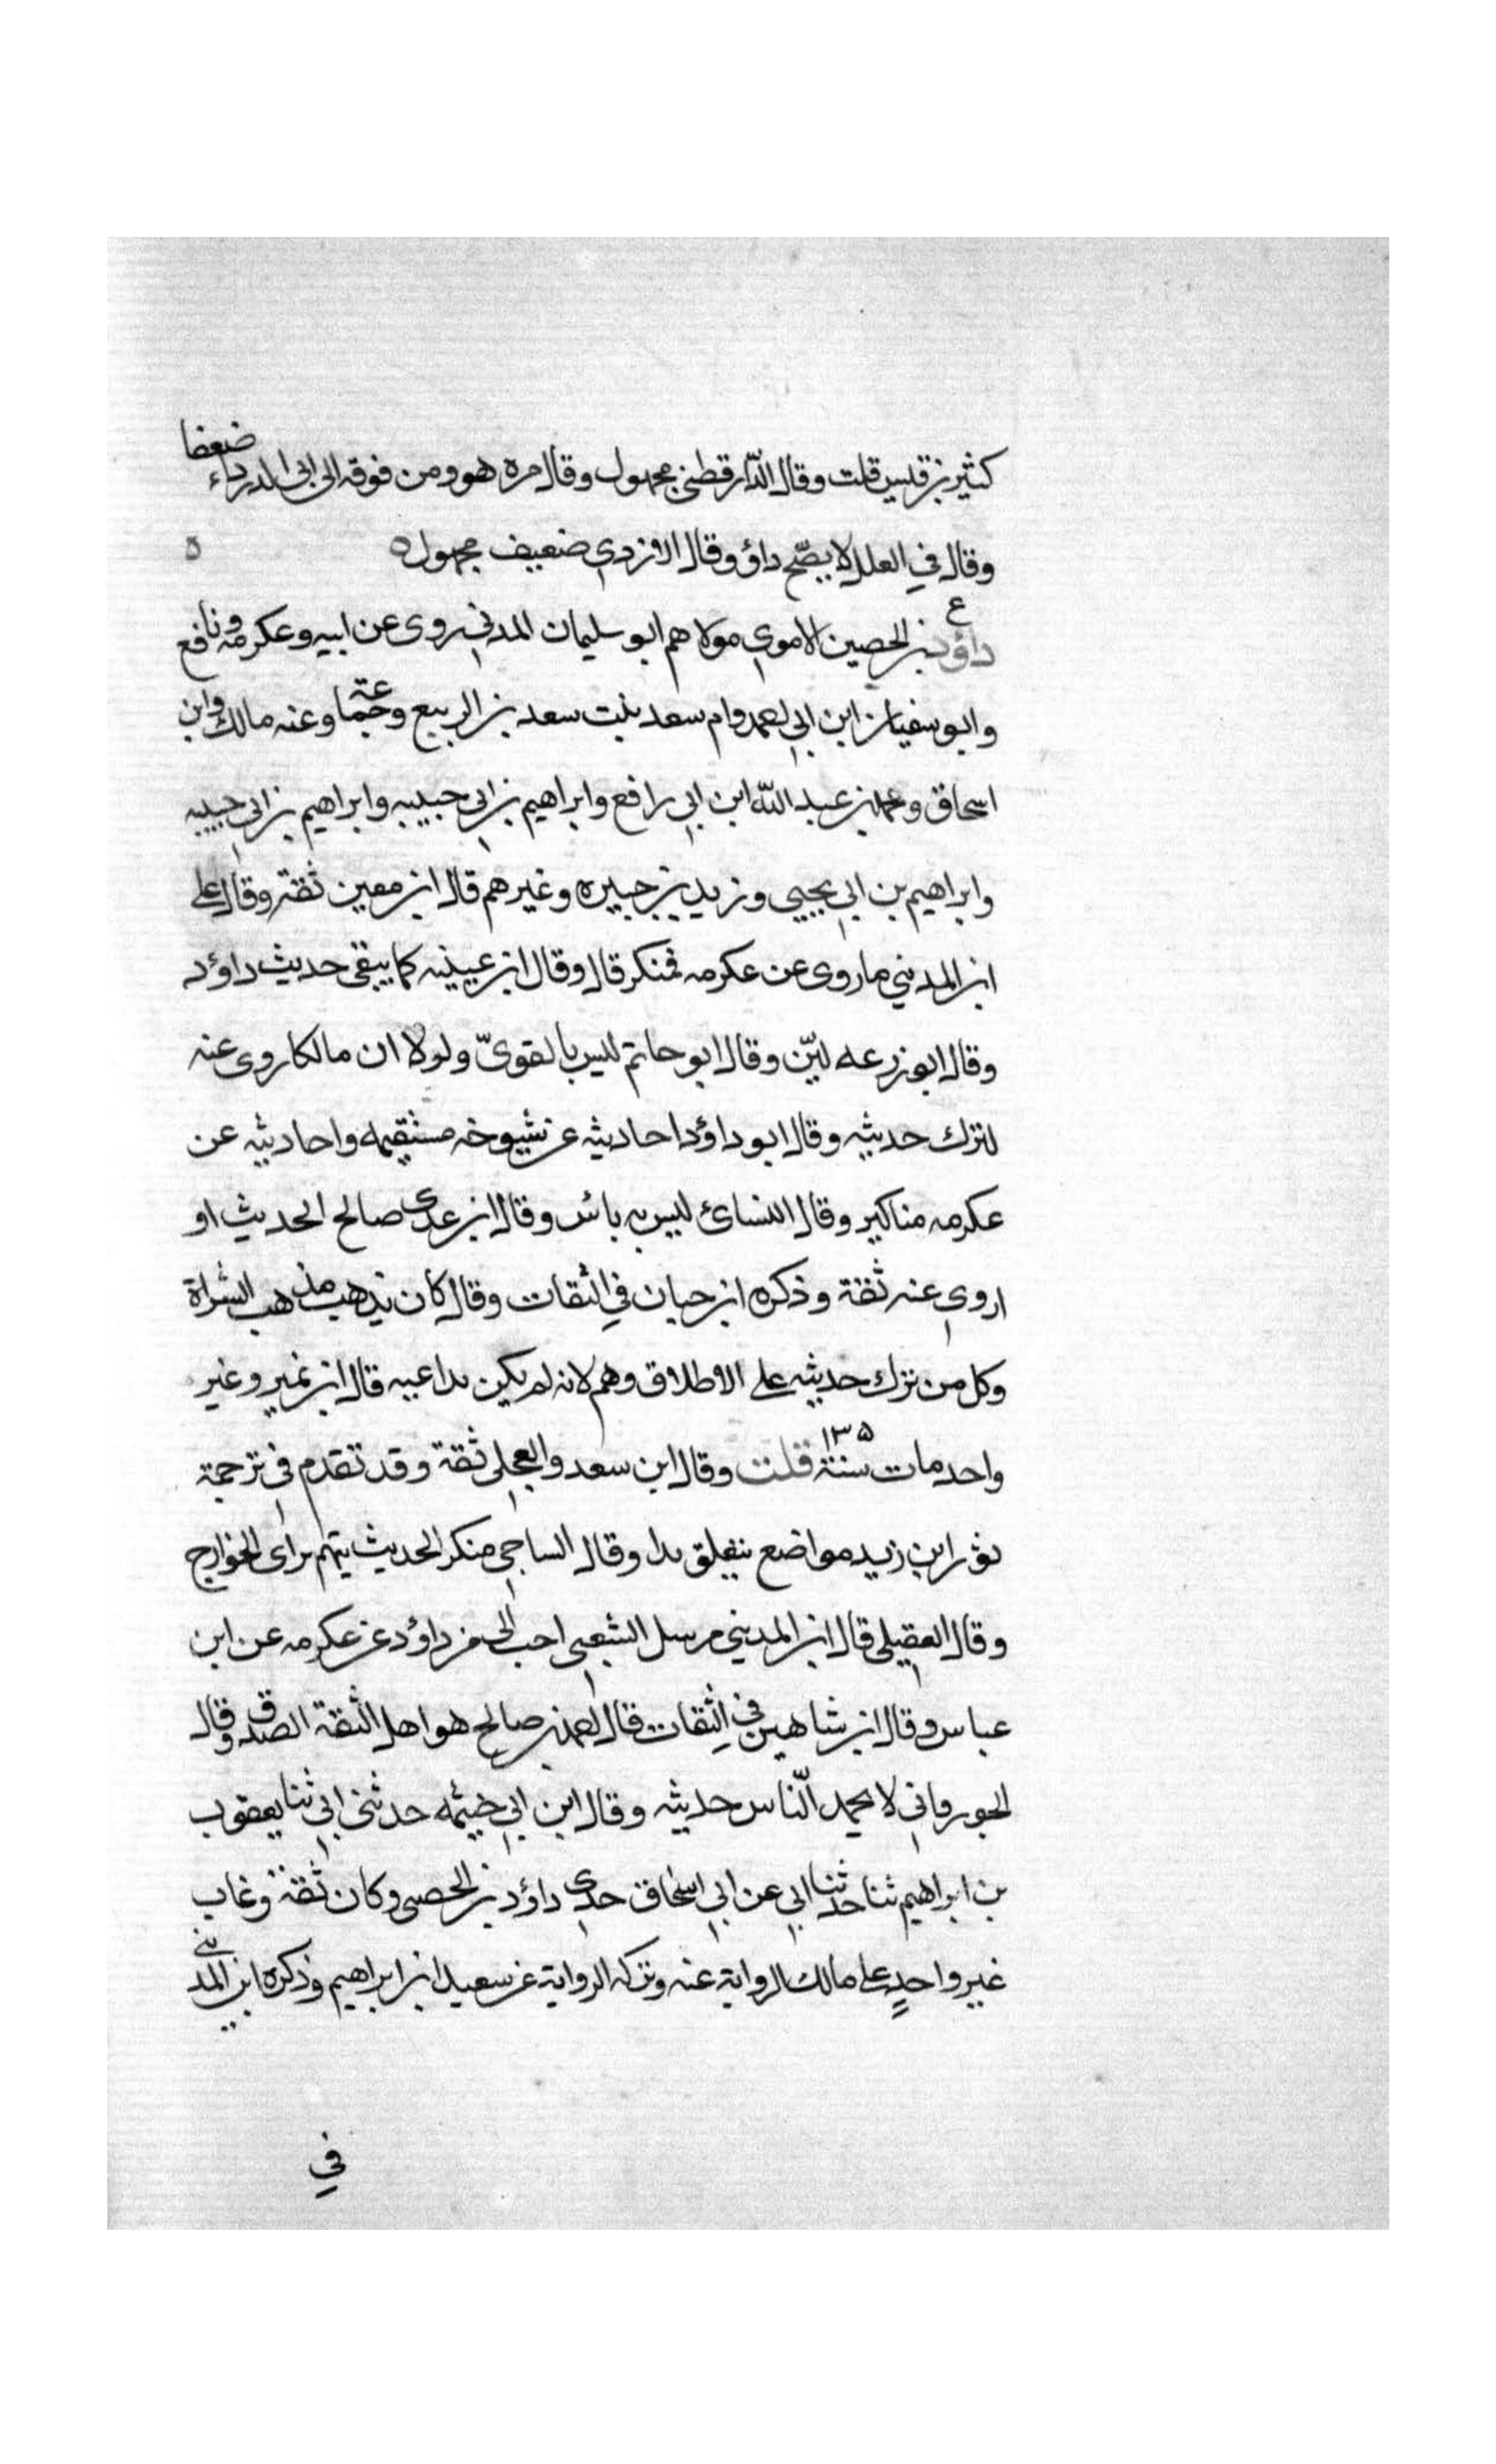 كثير بن قيس قلت وقال الدّارقطني مجهول وقال مره هو ومن فوقه الى ابى الدرداء ضعفا
وقال في العلل لا يصّح داؤ وقال الازدي ضعيف مجهول ه ه
ع
داؤد بن الحصين الاموي مولاهم ابو سليمان المدني روى عن ابيه وعكرمه ونافع
وابو سفيان ابن ابي احمد وام سعد بنت سعد بن الربيع وجماعة وعنه مالك وابن
اسحاق ومحمد بن عبد اللّه ابن ابي رافع وابراهيم بن ابي حبيبه وابراهيم بن ابي حبيبه
وابراهيم بن ابي يحيى وزيد بن جبيره وغيرهم قال ابن معين ثقة وقال على
ابن المديني ما روى عن عكرمه فمنكر قال وقال ابن عيينه كما يبقى حديث داؤد
وقال ابو زرعه ليّن وقال ابو حاتم ليس بالقويّ ولولا ان مالكا روى عنه
لترك حديثه وقال ابو داؤد احاديثه عن شيوخه مستقيمه واحاديثه عن
عكرمه مناكير وقال النسائ ليس به بائس وقال ابن عدى صالح الحديث او
اروي عنه ثقة وذكره ابن حبان في الثقات وقال كان يذهب مذهب الشراة
وكل من ترك حديثه على الاطلاق وهم لانه لم يكن بداعيه قال ابن نمير وغير
واحد مات سنة ١٣۵ قلت وقال ابن سعد والعجلي ثقة وقد تقدم في ترجمة
ثور ابن زيد مواضع يتعلق بدا وقال الساجي منكر الحديث يتهم براى الخوارج
وقال العقيلي قال ابن المديني مرسل الشعبي احب الي من داؤد عن عكرمه عن ابن
عباس وقال ابن شاهين في الثقات قال احمد بن صالح هو اهل الثقة الصدق وقال
الجورقاني لا يحمد النّاس حديثه وقال ابن ابي خيثمه حدثني ابي ثنا يعقوب
بن ابراهيم ثنا حدثنا ابي عن ابي اسحاق حدي داؤد بن الحصي وكان ثقة وعاب
غير واحدٍ على مالك الرواية عنه وتركه الرواية عن سعيد ابن ابراهيم وذكره ابن المديني
في